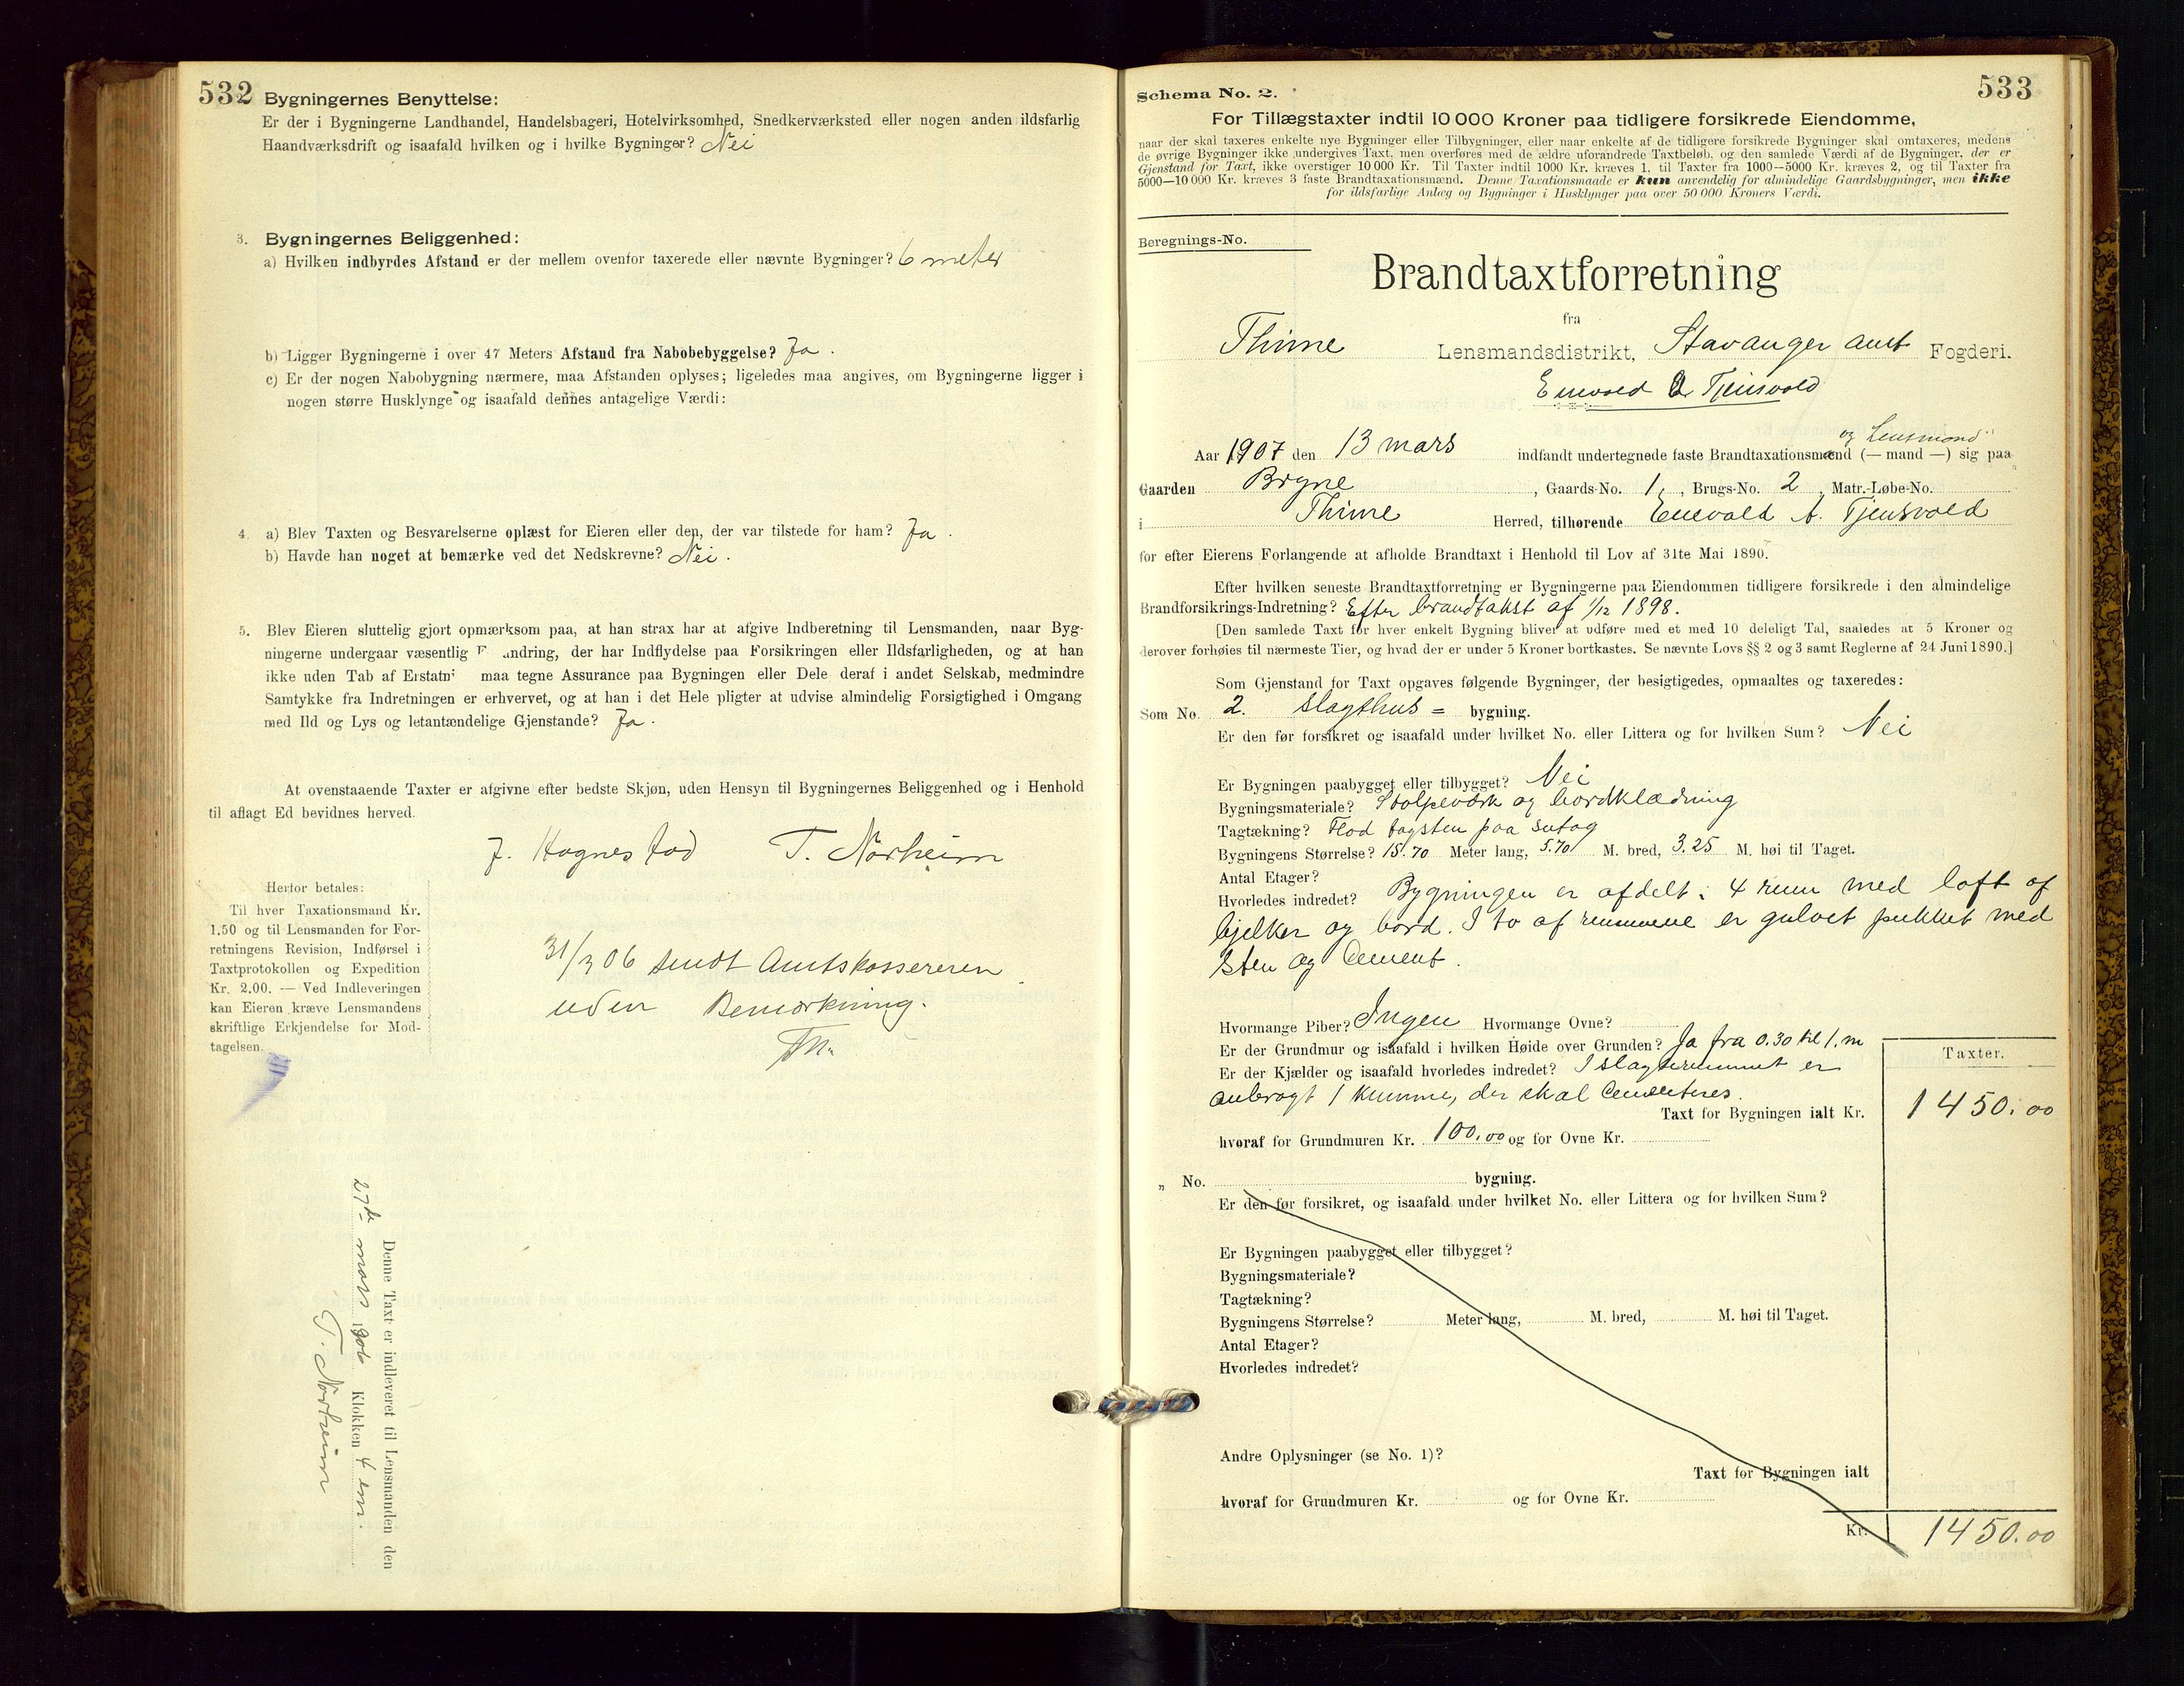 532
Bygningernes Benyttelse:
Er der i Bygningerne Landhandel, Handelsbageri, Hotelvirksomhed, Snedkerværksted eller nogen anden ildsfarlig
Haandværksdrift og isaafald hvilken og i hvilke Bygninger? Nei
3. Bygningernes Beliggenhed:
a) Hvilken indbyrdes Afstand er der mellem ovenfor taxerede eller nævnte Bygninger? 6 meter
b) Ligger Bygningerne i over 47 Meters Afstand fra Nabobebyggelse? Ja.
c) Er der nogen Nabobygning nærmere, maa Afstanden oplyses; ligeledes maa angives, om Bygningerne ligger i
nogen større Husklynge og isaafald dennes antagelige Værdi:
4. a) Blev Taxten og Besvarelserne oplæst for Eieren eller den, der var tilstede for ham? Ja.
b) Havde han noget at bemærke ved det Nedskrevne? Nei.
5. Blev Eieren sluttelig gjort opmærksom paa, at han strax har at afgive Indberetning til Lensmanden, naar Byg-
ningerne undergaar væsentlig F andring, der har Indflydelse paa Forsikringen eller Ildsfarligheden, og at han
ikke uden Tab af Erstatn maa tegne Assurance paa Bygningen eller Dele deraf i andet Selskab, medmindre
Samtykke fra Indretningen er erhvervet, og at han i det Hele pligter at udvise almindelig Forsigtighed i Omgang
med Ild og Lys og letantændelige Gjenstande? Ja.
At ovenstaaende Taxter er afgivne efter bedste Skjøn, uden Hensyn til Bygningernes Beliggenhed og i Henhold
til aflagt Ed bevidnes herved.
J. Hognestad T. Norheim
Herfor betales:
Til hver Taxationsmand Kr.
1.50 og til Lensmanden for For-
retningens Revision, Indførsel i
Taxtprotokollen og Expedition
Kr. 2.00. — Ved Indleveringen
kan Eieren kræve Lensmandens
skriftlige Erkjendelse for Mod-
tagelsen.
31/3 06 sendt Amtskassereren
uden Bemærkning.
Denne Taxt er indleveret til Lensmanden den
27de mars 1906 Klokken 4 em.
T. Norheim
533
Schema No. 2.
For Tillægstaxter indtil 10 000 Kroner paa tidligere forsikrede Eiendomme,
naar der skal taxeres enkelte nye Bygninger eller Tilbygninger, eller naar enkelte af de tidligere forsikrede Bygninger skal omtaxeres, medens
de øvrige Bygninger ikke undergives Taxt, men overføres med de ældre uforandrede Taxtbeløb, og den samlede Værdi af de Bygninger, der er
Gjenstand for Taxt, ikke overstiger 10 000 Kr. Til Taxter indtil 1000 Kr. kræves 1, til Taxter fra 1000—5000 Kr. kræves 2, og til Taxter fra
5000—10 000 Kr. kræves 3 faste Brandtaxationsmænd. Denne Taxationsmaade er kun anvendelig for almindelige Gaardsbygninger, men ikke
for ildsfarlige Anlæg og Bygninger i Husklynger paa over 50 000 Kroners Værdi.
Beregnings-No.
Brandtaxtforretning
fra
Thime Lensmandsdistrikt, Stavanger amt Fogderi.
Enevold A Tjensvold
og Lensmand
Aar 1907 den 13 mars indfandt undertegnede faste Brandtaxationsmænd (— mand —) sig paa
Gaarden Bryne, Gaards-No. 1, Brugs-No. 2, Matr.-Løbe-No.
i Thime Herred, tilhørende Enevold A. Tjensvold
for efter Eierens Forlangende at afholde Brandtaxt i Henhold til Lov af 31te Mai 1890.
Efter hvilken seneste Brandtaxtforretning er Bygningerne paa Eiendommen tidligere forsikrede i den almindelige
Brandforsikrings-Indretning? Efter brandtakst af 1/12 1898.
[Den samlede Taxt for hver enkelt Bygning bliver at udføre med et med 10 deleligt Tal, saaledes at 5 Kroner og
derover forhøies til nærmeste Tier, og hvad der er under 5 Kroner bortkastes. Se nævnte Lovs §§ 2 og 3 samt Reglerne af 24 Juni 1890.]
Som Gjenstand for Taxt opgaves følgende Bygninger, der besigtigedes, opmaaltes og taxeredes:
Som No. 2. Slagthus = bygning.
Er den før forsikret og isaafald under hvilket No. eller Littera og for hvilken Sum? Nei
Er Bygningen paabygget eller tilbygget? Nei
Bygningsmateriale? Stolpeværk og bordklædning
Tagtækning? Flod tagsten paa sutag
Bygningens Størrelse? 15.70 Meter lang, 5.70 M. bred, 3.25 M. høi til Taget.
Antal Etager?
Hvorledes indredet? Bygningen er afdelt i 4 rum med loft af
bjelker og bord. I to af rummene er gulvet pukket med
Sten og Cement.
Hvormange Piber? Ingen Hvormange Ovne?
Er der Grundmur og isaafald i hvilken Høide over Grunden? Ja fra 0.30 til 1. m
Er der Kjælder og isaafald hvorledes indredet? I slagterummet er
anbragt 1 kumme, der skal Cementeres.
Taxter.
Taxt for Bygningen ialt Kr. 1450.00
hvoraf for Grundmuren Kr. 100.00 og for Ovne Kr.
„ No. bygning.
Er den før forsikret, og isaafald under hvilket No. eller Littera og for hvilken Sum?
Er Bygningen paabygget eller tilbygget?
Bygningsmateriale?
Tagtækning?
Bygningens Størrelse? Meter lang, M. bred, M. høi til Taget.
Antal Etager?
Hvorledes indredet?
Andre Oplysninger (se No. 1)?
Taxt for Bygningen ialt
hvoraf for Grundmuren Kr. og for Ovne Kr.
Kr. 1450.00